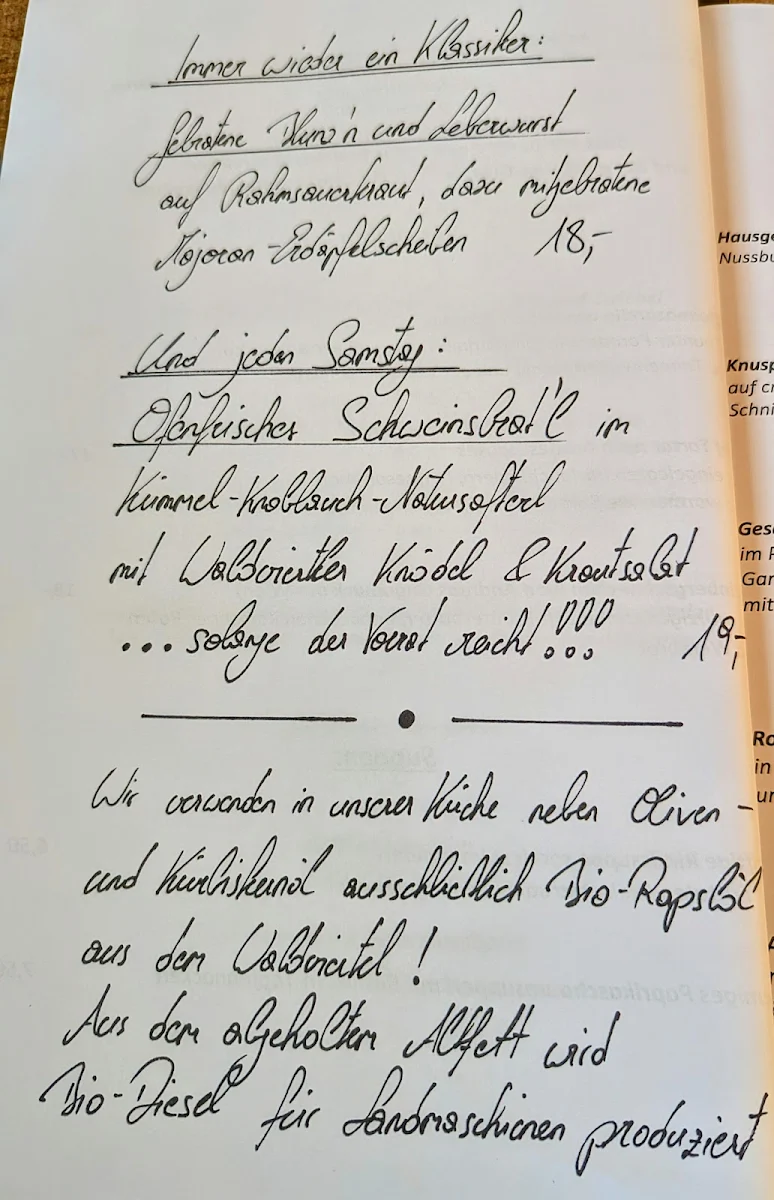 Immer wieder ein Klassiker:
Gebratene Blunz'n und Leberwurst
auf Rahmsauerkraut, dazu mitgebratene
Majoran-Erdäpfelscheiben 18,-
Und jeden Samstag:
Ofenfrisches Schweinsbrat'l im
Kümmel-Knoblauch-Natursafterl
mit Waldviertler Knödel & Krautsalat
... solange der Vorrat reicht!!!! 19,-
Wir verwenden in unserer Küche neben Oliven-
und Kürbiskernöl ausschließlich Bio-Rapsöl
aus dem Waldviertel!
Aus dem abgeholten Altfett wird
Bio-Diesel für Landmaschienen produziert
Hausge
Nussbu
Knusp
auf cr
Schni
Ges
im P
Gar
mit
Ro
in
un